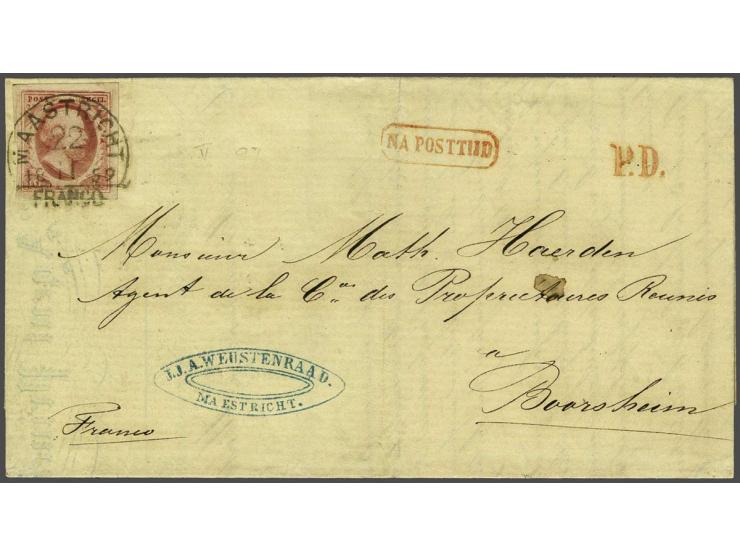 POST ZEGEL
MAASTRICHT
22
FRANCO
NA POSTTIJD
P.D.
Monsieur Math. Haerden
Agent de la Cie des Proprietaires Reunis
a
Boorsheim
J.J.A. WEUSTENRAAD.
MAESTRICHT.
Franco